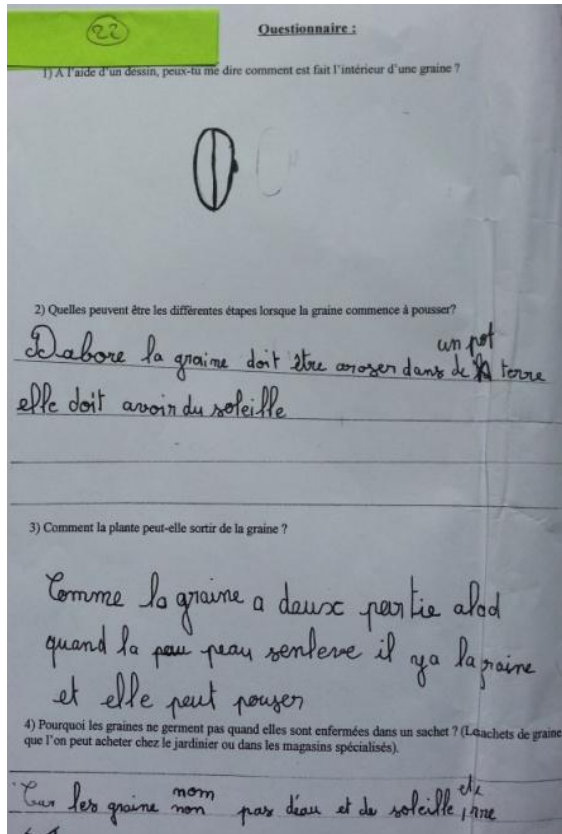 22
Questionnaire :
1) A l'aide d'un dessin, peux-tu me dire comment est fait l'intérieur d'une graine ?
2) Quelles peuvent être les différentes étapes lorsque la graine commence à pousser?
un pot
Dabore la graine doit être aroser dans de terre
elle doit avoir du soleille
3) Comment la plante peut-elle sortir de la graine ?
Comme la graine a deux partie
quand la peau senleve il ya la graine
et elle peut pouser
4) Pourquoi les graines ne germent pas quand elles sont enfermées dans un sachet ? (
que l'on peut acheter chez le jardinier ou dans les magasins spécialisés).
nom
Car les graine non pas déau et de soleille